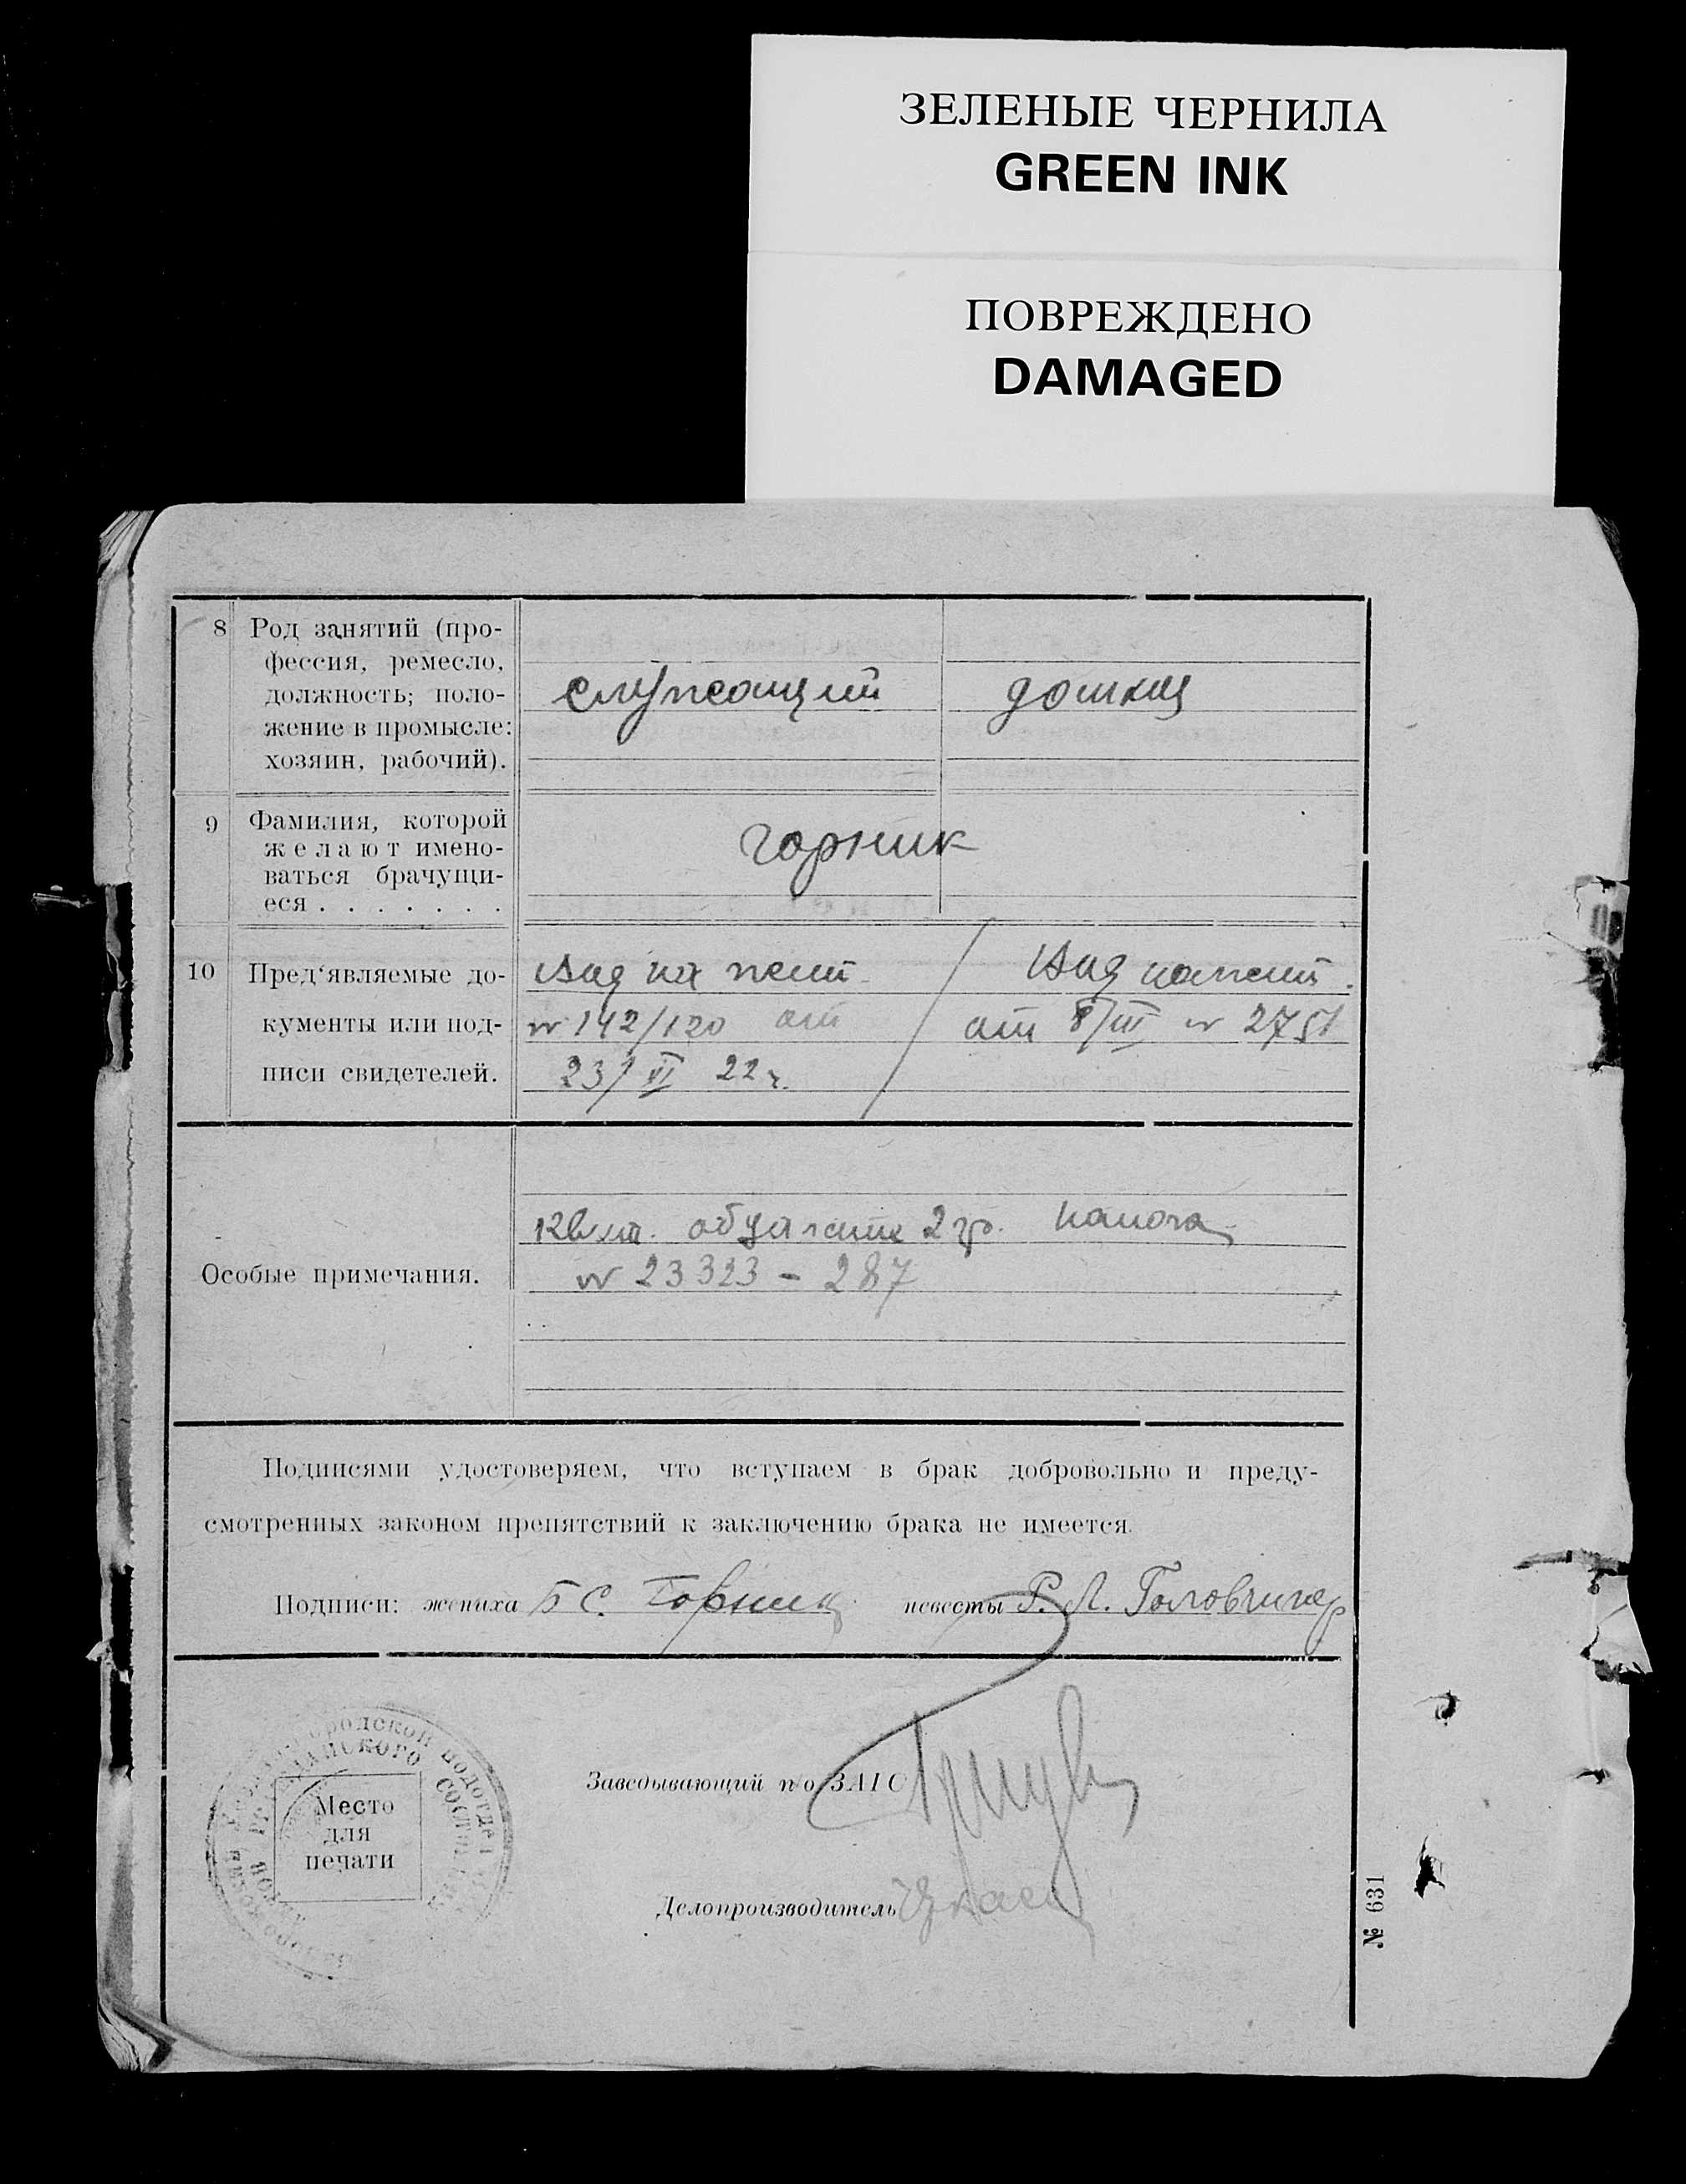 ЗЕЛЕНЫЕ ЧЕРНИЛА
GREEN INK
ПОВРЕЖДЕНО
DAMAGED
8 Род занятий (про-
фессия, ремесло,
должность; поло-
жение в промысле:
хозяин, рабочий).
служащий
домхоз
9 Фамилия, которой
желают имено-
ваться брачущи-
еся . . . . . . .
Горник
10 Пред‘являемые до-
кументы или под-
писи свидетелей.
Вид на жит.
№ 142/120 от
23/VI 22 г.
Вид на жит.
от 8/III № 2751
Особые примечания.
Квит. 2
№ 23323 - 287
Подписями удостоверяем, что вступаем в брак добровольно и преду-
смотренных законом препятствий к заключению брака не имеется.
Подписи: жениха Б С. Горник невесты Р. Л. Головчинер
Место
для
печати
Заведывающий п/о ЗАГС
Делопроизводитель
№ 631